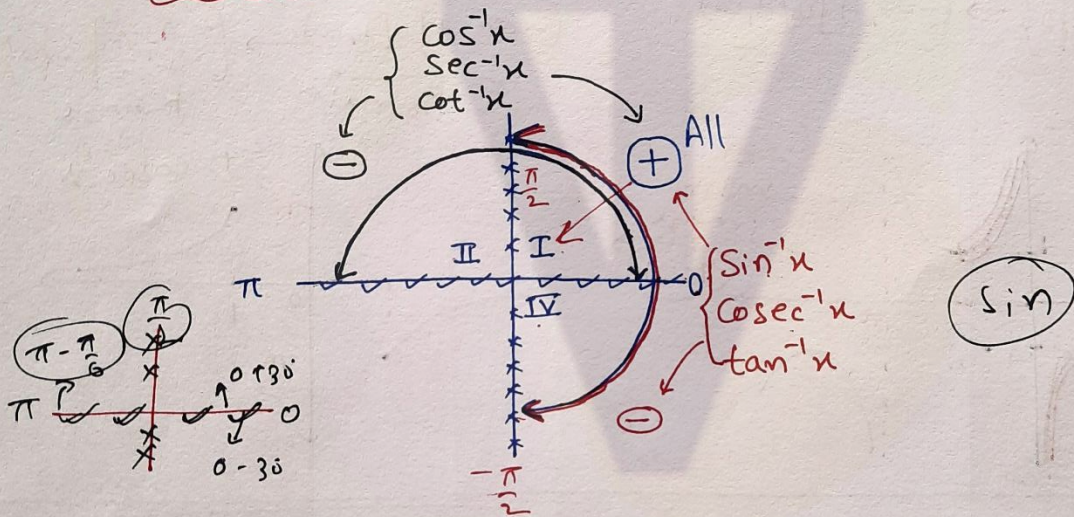 cos⁻¹x
sec⁻¹x
cot⁻¹x
⊖
⊕ All
π/2
II I
π 0
IV
Sin⁻¹x
Cosec⁻¹x
tan⁻¹x
⊖
-π/2
sin
π - π/6
π
π 0
0+30
0-30